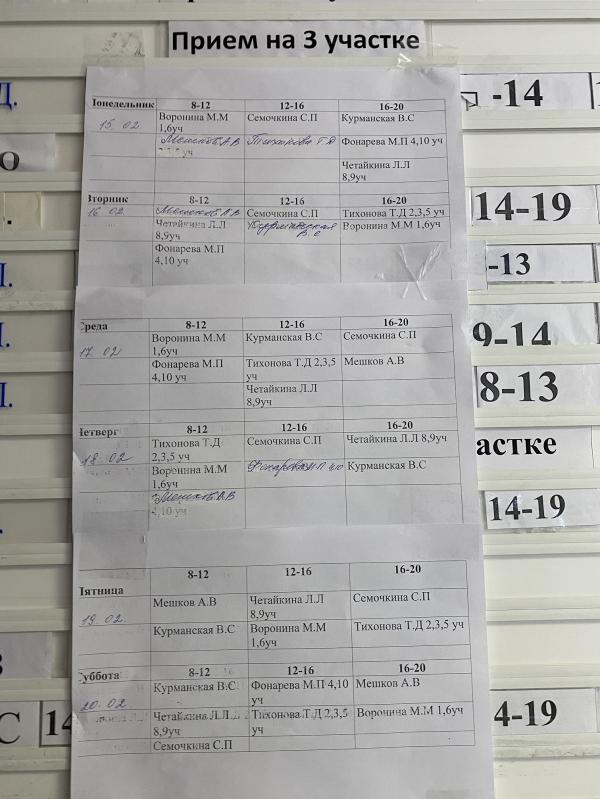 Прием на 3 участке
Понедельник 8-12 12-16 16-20
15.02 Воронина М.М Семочкина С.П Курманская В.С
1,6уч
Мешков А.В Тихонова Т.Д Фонарева М.П 4,10 уч
уч
Четайкина Л.Л
8,9уч
Вторник 8-12 12-16 16-20
16.02 Мешков А.В Семочкина С.П Тихонова Т.Д 2,3,5 уч
Четайкина Л.Л Курманская Воронина М.М 1,6уч
8,9уч В.С
Фонарева М.П
4,10 уч
Среда 8-12 12-16 16-20
17.02 Воронина М.М Курманская В.С Семочкина С.П
1,6уч
Фонарева М.П Тихонова Т.Д 2,3,5 Мешков А.В
4,10 уч уч
Четайкина Л.Л
8,9уч
Четверг 8-12 12-16 16-20
18.02 Тихонова Т.Д Семочкина С.П Четайкина Л.Л 8,9уч
2,3,5 уч
Воронина М.М Фонарева М.П 4,10 Курманская В.С
1,6уч
Мешков А.В
4,10 уч
Пятница 8-12 12-16 16-20
19.02 Мешков А.В Четайкина Л.Л Семочкина С.П
8,9уч
Курманская В.С Воронина М.М Тихонова Т.Д 2,3,5 уч
1,6уч
Суббота 8-12 12-16 16-20
20.02 Курманская В.С Фонарева М.П 4,10 Мешков А.В
уч
Четайкина Л.Л Тихонова Т.Д 2,3,5 Воронина М.М 1,6уч
8,9уч уч
Семочкина С.П
-14
14-19
-13
9-14
8-13
астке
14-19
4-19
Д.
о
С 14